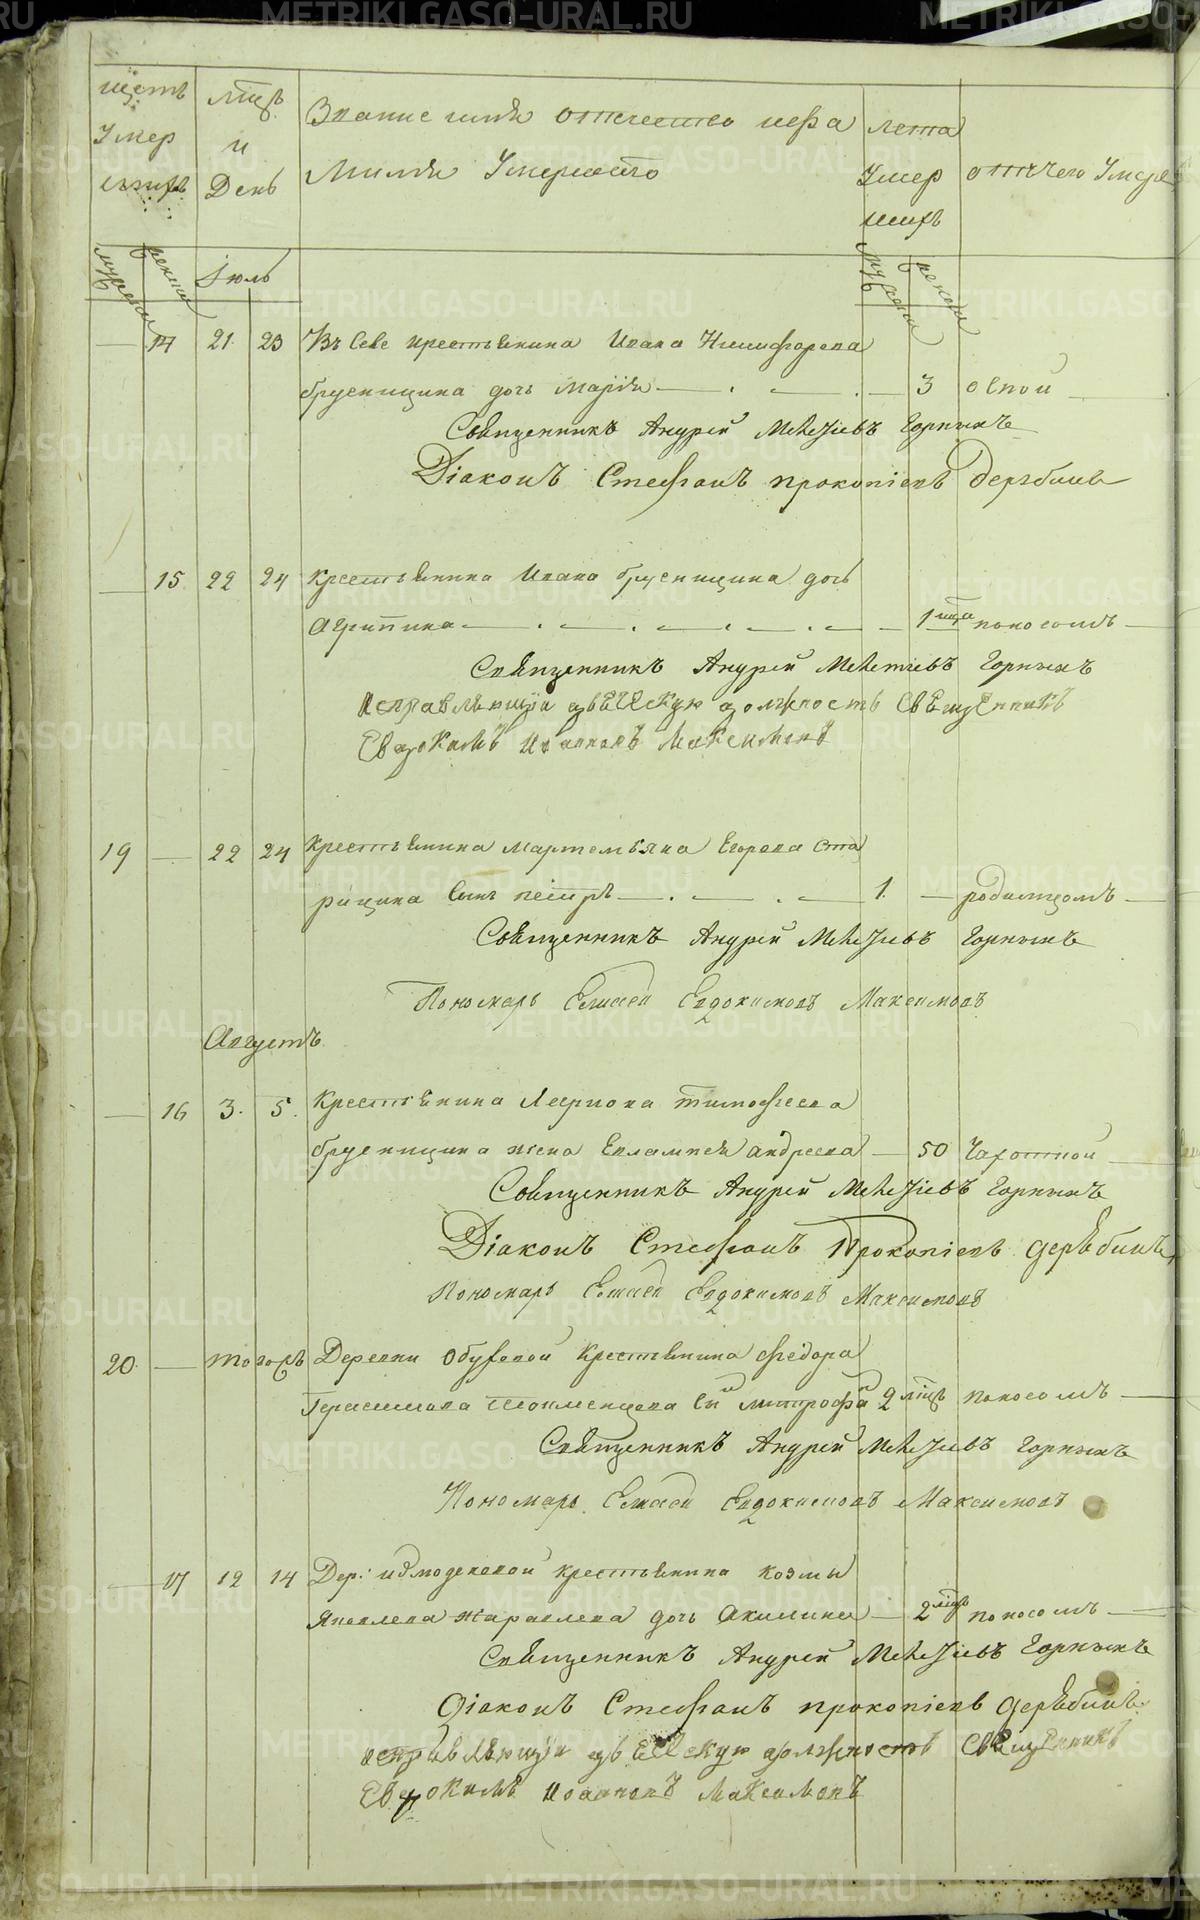 щетъ
Умер
шихъ
мцъ
и
День
Звание имя отечество ифа
милия Умершего
лета
Умер
шихъ
отчего Умре
мужеска
женска
Июль
мужеска
женска
14 21. 23 Въ селе крестьянина Ивана Никифорова
брусницина дочь Мария 3 оспой
Священникъ Андрей Мелетиевъ Горныхъ
Діаконъ Стефанъ прокопіевъ дерябинъ
15 22 24 крестьянина Ивана брусницина дочь
Агрипина 1 мца поносомъ
Священникъ Андрей Мелетиевъ Горныхъ
исправляющїи дьяческую должность священникъ
Евдокимъ Иоанновъ Максимовъ
19 22 24 крестьянина мартемьяна Егорова ста
рицина сынъ петръ 1. родимцомъ
Священникъ Андрей Мелетиевъ Горныхъ
Пономарь Елисей Евдокимовъ Максимовъ
Августъ
16 3. 5. крестьянина Лариона тимофеева
брусницина жена Евлампия андреева 50 чахоткой
Священникъ Андрей Мелетиевъ Горныхъ
Діаконъ Стефанъ Прокопіевъ дерябинъ
Пономарь Елисей Евдокимовъ Максимовъ
20. тогожъ Деревни Обуховой крестьянина федора
Герасимова сынъ митрофанъ 2 мцъ поносомъ
Священникъ Андрей Мелетиевъ Горныхъ
Пономарь Елисей Евдокимовъ Максимовъ
17 12 14 Дер: измоденовой крестьянина козмы
Яковлева Журавлева дочь Акилина 2 мцъ поносомъ
Священникъ Андрей Мелетиевъ Горныхъ
Діаконъ Стефанъ прокопіевъ дерябинъ
исправляющїи дьяческую должность священникъ
Евдокимъ Иоанновъ Максимовъ
METRIKI.GASO-URAL.RU